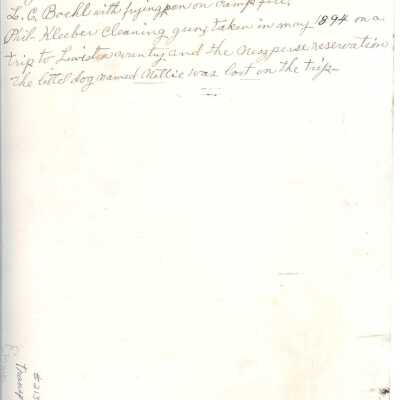 L. C. Boehl with frying pan on camp fire,
Phil. Kleeber cleaning gun, taken in may 1894 on a
trip to Lewiston country and the Nezperse reservation
The littel dog named Mollie was lost on the trip
#213